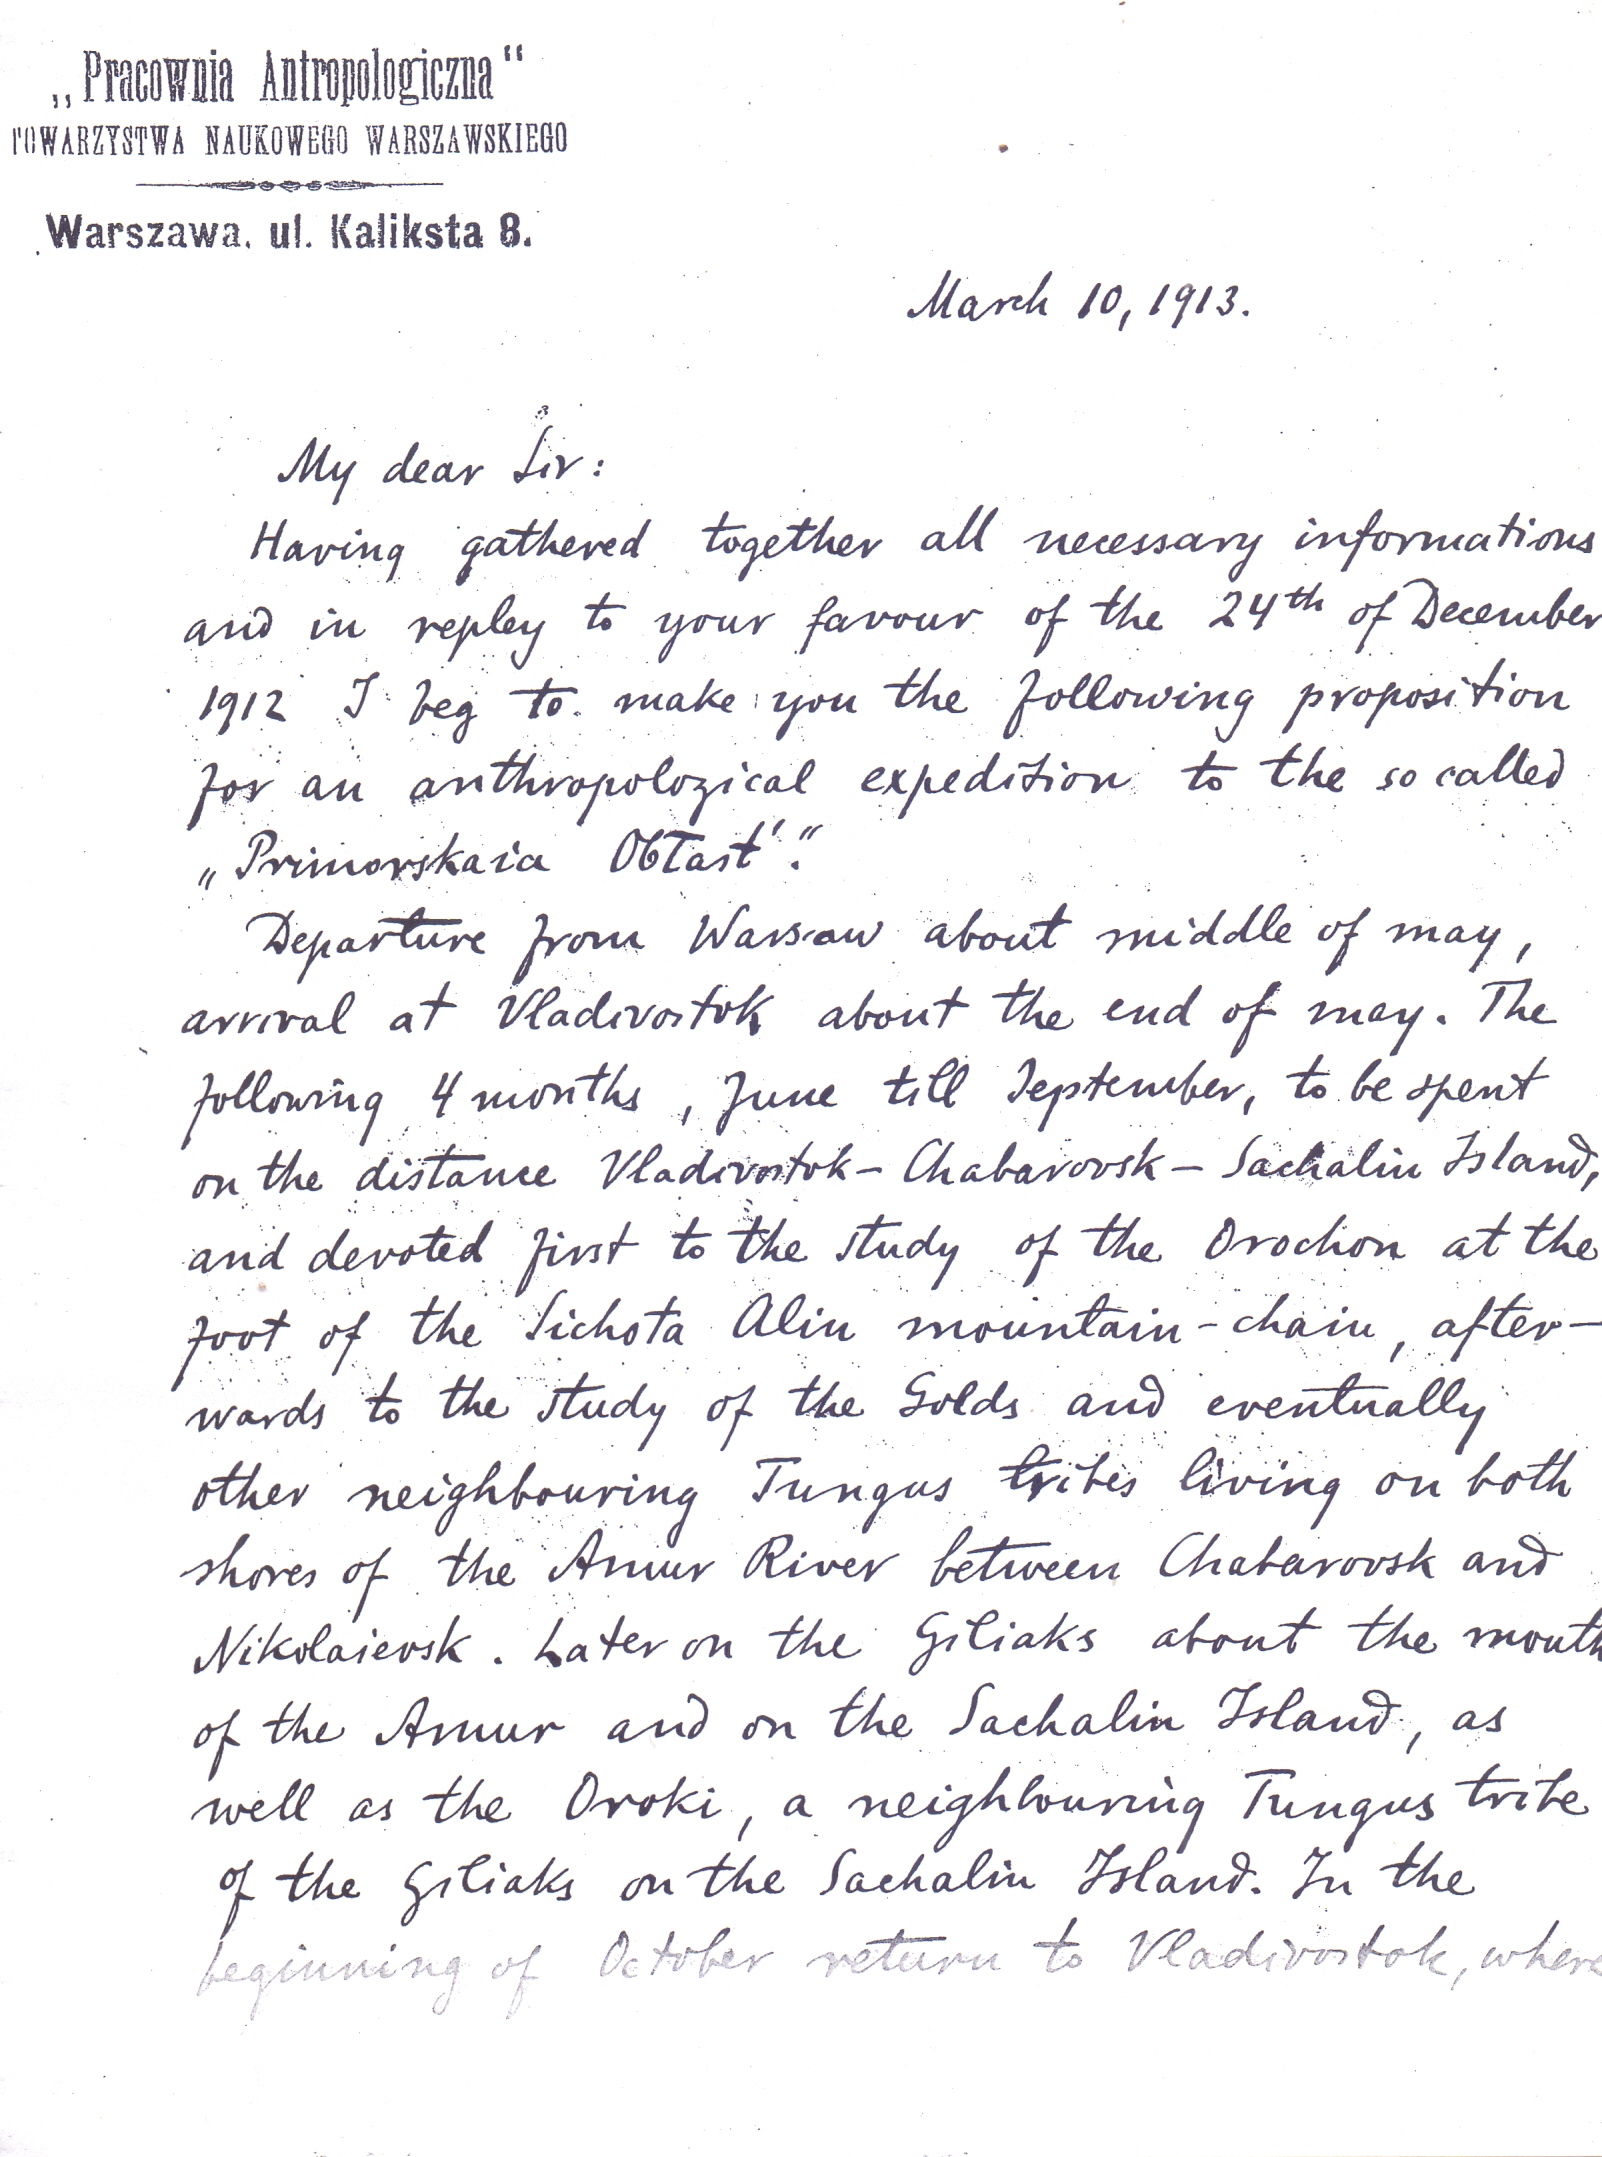 „Pracownia Antropologiczna“
TOWARZYSTWA NAUKOWEGO WARSZAWSKIEGO
Warszawa, ul. Kaliksta 8.
March 10, 1913.
My dear Sir:
Having gathered together all necessary informations
and in repley to your favour of the 24th of December
1912 I beg to make you the following proposition
for an anthropological expedition to the so called
„Primorskaia Obłast'.“
Departure from Warsaw about middle of may,
arrival at Vladivostok about the end of may. The
following 4 months, June till September, to be spent
on the distance Vladivostok – Chabarovsk – Sachalin Island,
and devoted first to the study of the Orochon at the
foot of the Sichota Alin mountain-chain, after-
wards to the study of the Golds and eventually
other neighbouring Tungus tribes living on both
shores of the Amur River between Chabarovsk and
Nikolaievsk. Later on the Giliaks about the mouth
of the Amur and on the Sachalin Island, as
well as the Oroki, a neighbouring Tungus tribe
of the Giliaks on the Sachalin Island. In the
beginning of October return to Vladivostok, where